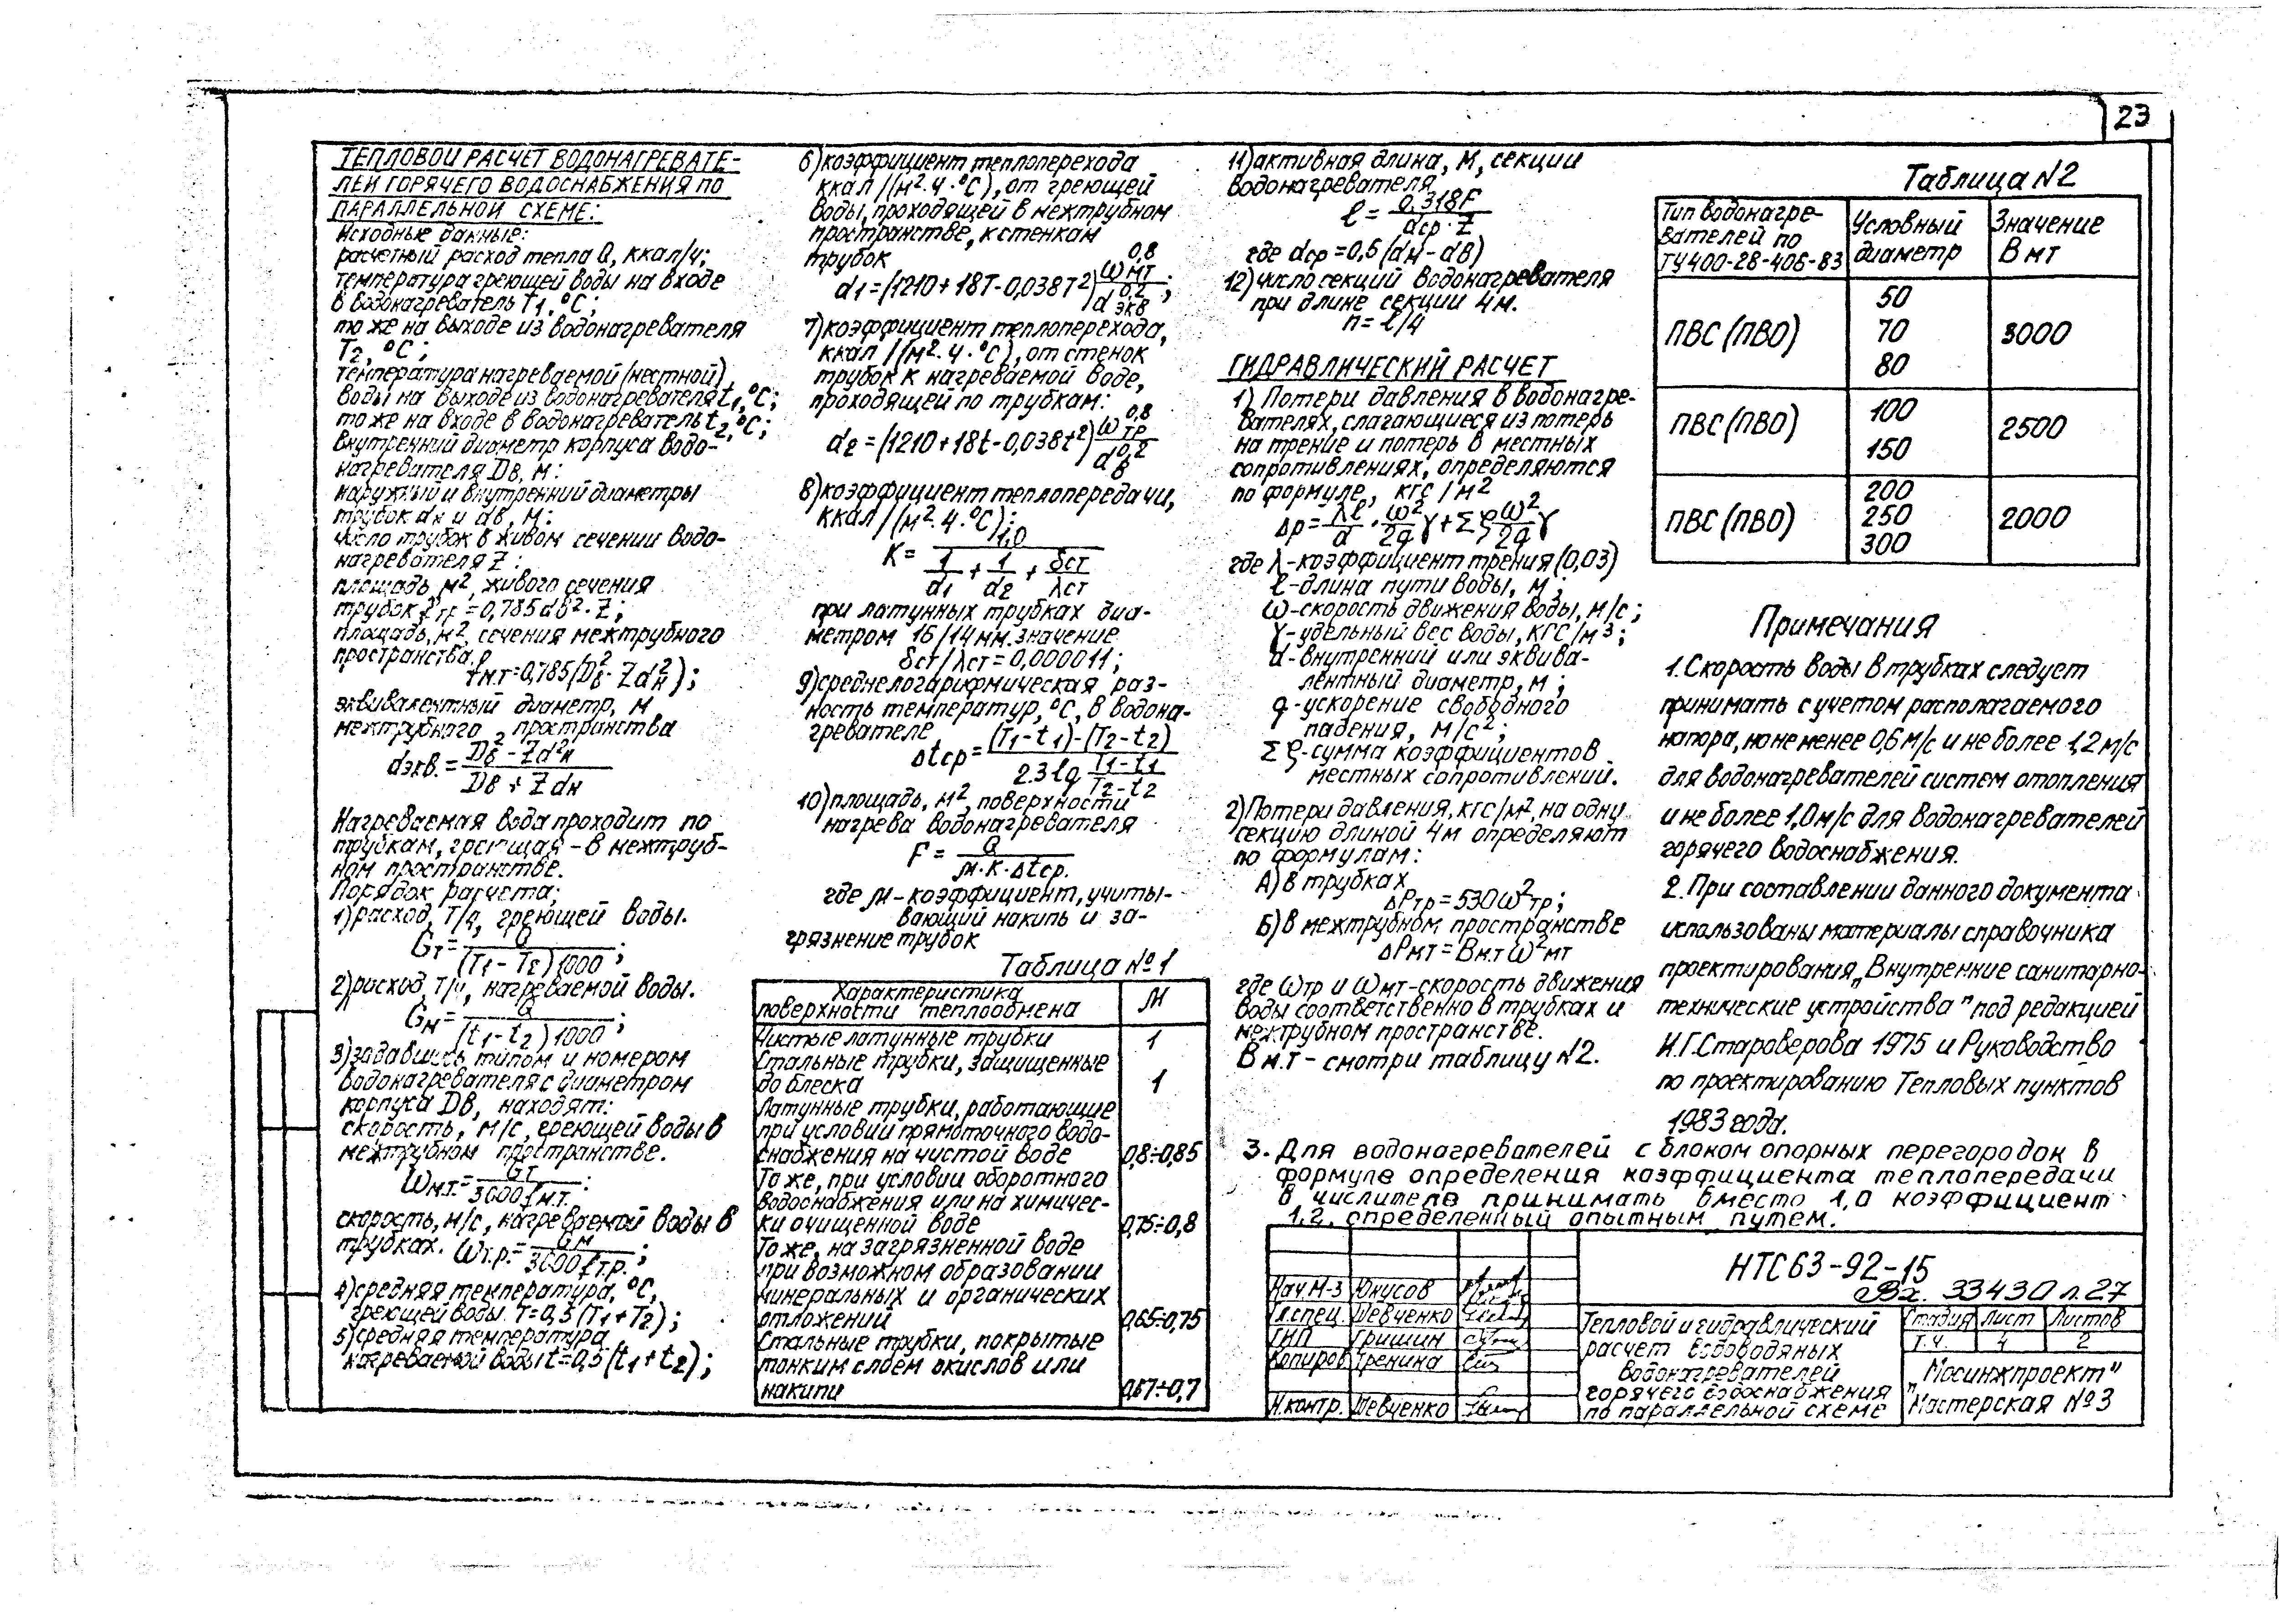 23
ТЕПЛОВОЙ РАСЧЕТ ВОДОНАГРЕВАТЕ-
ЛЕЙ ГОРЯЧЕГО ВОДОСНАБЖЕНИЯ ПО
ПАРАЛЛЕЛЬНОЙ СХЕМЕ:
Исходные данные:
расчетный расход тепла Q, ккал/ч;
температура греющей воды на входе
в водонагреватель T1, °C;
то же на выходе из водонагревателя
T2, °C;
температура нагреваемой (местной)
воды на выходе из водонагревателя t1, °C;
то же на входе в водонагреватель t2, °C;
внутренний диаметр корпуса водо-
нагревателя Dв, м:
наружный и внутренний диаметры
трубок dн и dв, м:
число трубок в живом сечении водо-
нагревателя Z:
площадь, м², живого сечения
трубок fтр = 0,785 dв² · Z;
площадь, м², сечения межтрубного
пространства
fм.т = 0,785 (Dв² - Z dн²);
эквивалентный диаметр, м
межтрубного пространства
dэкв. = (Dв² - Z d²н) / (Dв + Z dн)
Нагреваемая вода проходит по
трубкам, греющая - в межтруб-
ном пространстве.
Порядок расчета:
1) расход, т/ч, греющей воды.
Gт = Q / ((T1 - T2) 1000);
2) расход, т/ч, нагреваемой воды.
Gн = Q / ((t1 - t2) 1000);
3) задавшись типом и номером
водонагревателя с диаметром
корпуса Dв, находят:
скорость, м/с, греющей воды в
межтрубном пространстве.
ωм.т. = Gт / 3600 fм.т.;
скорость, м/с, нагреваемой воды в
трубках. ωт.р. = Gн / 3600 fт.р.;
4) средняя температура, °C,
греющей воды. T = 0,5 (T1 + T2);
5) средняя температура
нагреваемой воды t = 0,5 (t1 + t2);
6) коэффициент теплоперехода
ккал/(м²·ч·°C), от греющей
воды, проходящей в межтрубном
пространстве, к стенкам
трубок
α1 = (1210 + 18T - 0,038T²) ωмт^0,8 / d экв^0,2;
7) коэффициент теплоперехода,
ккал/(м²·ч·°C), от стенок
трубок к нагреваемой воде,
проходящей по трубкам:
α2 = (1210 + 18t - 0,038t²) ωтр^0,8 / dв^0,2
8) коэффициент теплопередачи,
ккал/(м²·ч·°C);
K = 1,0 / (1/α1 + 1/α2 + δст/λст)
при латунных трубках диа-
метром 16/14 мм. значение
δст/λст = 0,000011;
9) среднелогарифмическая раз-
ность температур, °C, в водона-
гревателе
Δtср = ((T1 - t1) - (T2 - t2)) / (2.3 lg (T1 - t1)/(T2 - t2))
10) площадь, м², поверхности
нагрева водонагревателя
F = Q / (М · K · Δtср.)
где М - коэффициент, учиты-
вающий накипь и за-
грязнение трубок
Таблица №1
Характеристика поверхности теплообмена | М
Чистые латунные трубки | 1
Стальные трубки, защищенные
до блеска | 1
Латунные трубки, работающие
при условии прямоточного водо-
снабжения на чистой воде | 0,8÷0,85
То же, при условии оборотного
водоснабжения или на химичес-
ки очищенной воде | 0,75÷0,8
То же, на загрязненной воде
при возможном образовании
минеральных и органических
отложений | 0,65÷0,75
Стальные трубки, покрытые
тонким слоем окислов или
накипи
11) активная длина, м, секции
водонагревателя
ℓ = 0,318F / (dср · Z)
где dср = 0,5 (dн - dв)
12) число секций водонагревателя
при длине секции 4м.
n = ℓ/4
ГИДРАВЛИЧЕСКИЙ РАСЧЕТ
1) Потери давления в водонагре-
вателях, слагающиеся из потерь
на трение и потерь в местных
сопротивлениях, определяются
по формуле, кгс/м²
Δp = λℓ/d · ω²/2g γ + Σξ ω²/2g γ
где λ - коэффициент трения (0,03)
ℓ - длина пути воды, м;
ω - скорость движения воды, м/с;
γ - удельный вес воды, кгс/м³;
d - внутренний или эквива-
лентный диаметр, м;
g - ускорение свободного
падения, м/с²;
Σξ - сумма коэффициентов
местных сопротивлений.
2) Потери давления, кгс/м², на одну
секцию длиной 4м определяют
по формулам:
А) в трубках
ΔPтр = 530 ω²тр;
Б) в межтрубном пространстве
ΔPмт = Вм.т ω²мт
где ωтр и ωмт - скорость движения
воды соответственно в трубках и
межтрубном пространстве.
В м.т - смотри таблицу №2.
Таблица N2
Тип водонагре-
вателей по
ТУ400-28-406-83 | Условный диаметр | Значение Вмт
ПВС (ПВО) | 50 70 80 | 3000
ПВС (ПВО) | 100 150 | 2500
ПВС (ПВО) | 200 250 300 | 2000
Примечания
1. Скорость воды в трубках следует
принимать с учетом располагаемого
напора, но не менее 0,6 м/с и не более 1,2 м/с
для водонагревателей систем отопления
и не более 1,0 м/с для водонагревателей
горячего водоснабжения.
2. При составлении данного документа
использованы материалы справочника
проектирования „Внутренние санитарно-
технические устройства" под редакцией
И.Г. Староверова 1975 и Руководство
по проектированию Тепловых пунктов
1983 года.
3. Для водонагревателей с блоком опорных перегородок в
формуле определения коэффициента теплопередачи
в числителе принимать вместо 1,0 коэффициент
1,2, определенный опытным путем.
НТС 63-92-15
Вх. 33430 л.27
Нач М-3 Юнусов
Гл.спец. Шевченко
ГИП Гришин
Копиров Гренина
Н.контр. Шевченко
Тепловой и гидравлический
расчет водоводяных
водонагревателей
горячего водоснабжения
по параллельной схеме
Стадия Лист Листов
Т.Ч. 4 2
„Мосинжпроект"
Мастерская №3